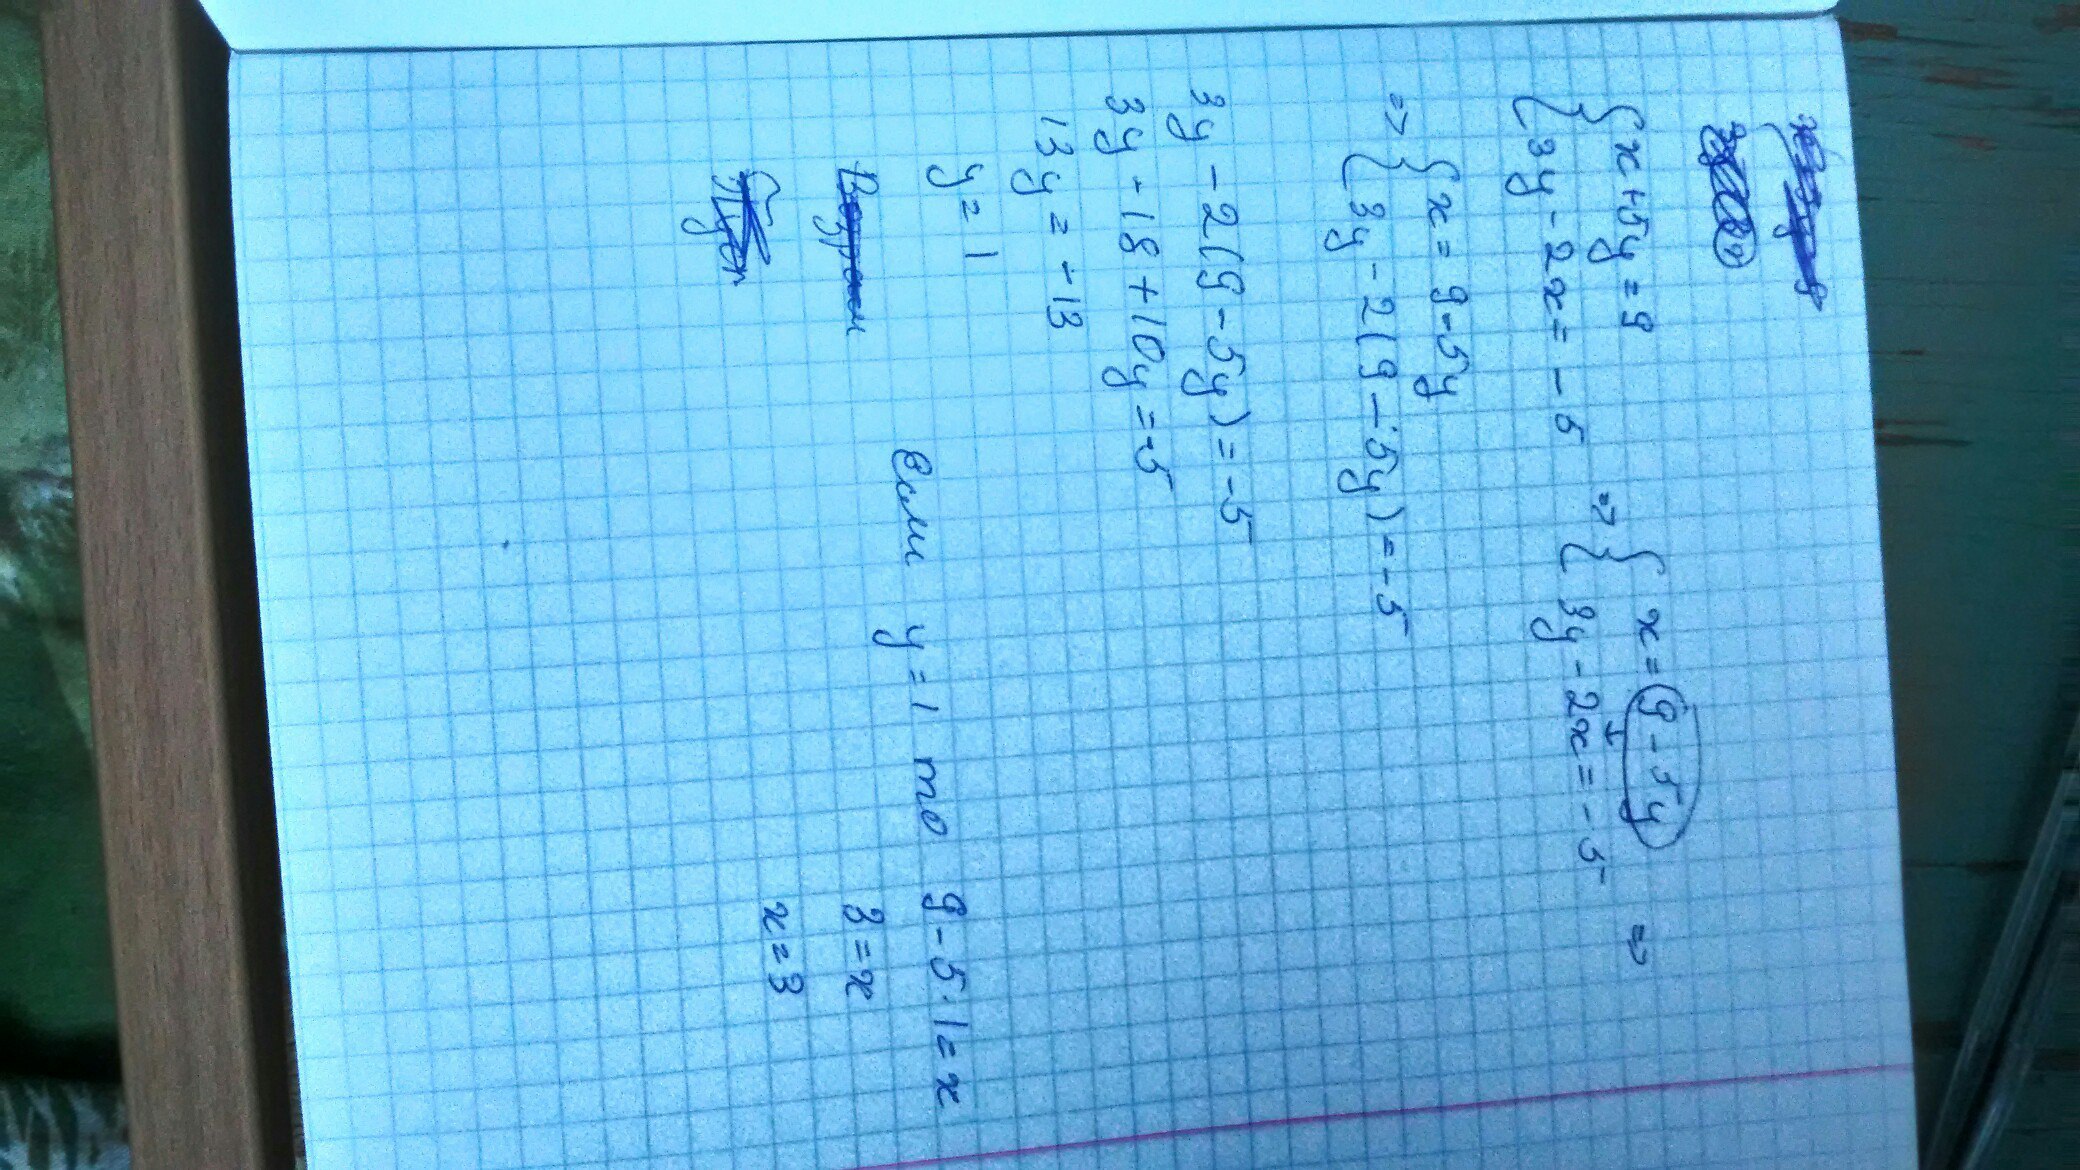 { x + 5y = 9
{ 3y - 2x = - 5
=> { x = 9 - 5y
{ 3y - 2x = - 5 =>
=> { x = 9 - 5y
{ 3y - 2(9 - 5y) = - 5
3y - 2(9 - 5y) = - 5
3y - 18 + 10y = - 5
13y = - 13
y = 1
Если y = 1 то 9 - 5 · 1 = x
3 = x
x = 3